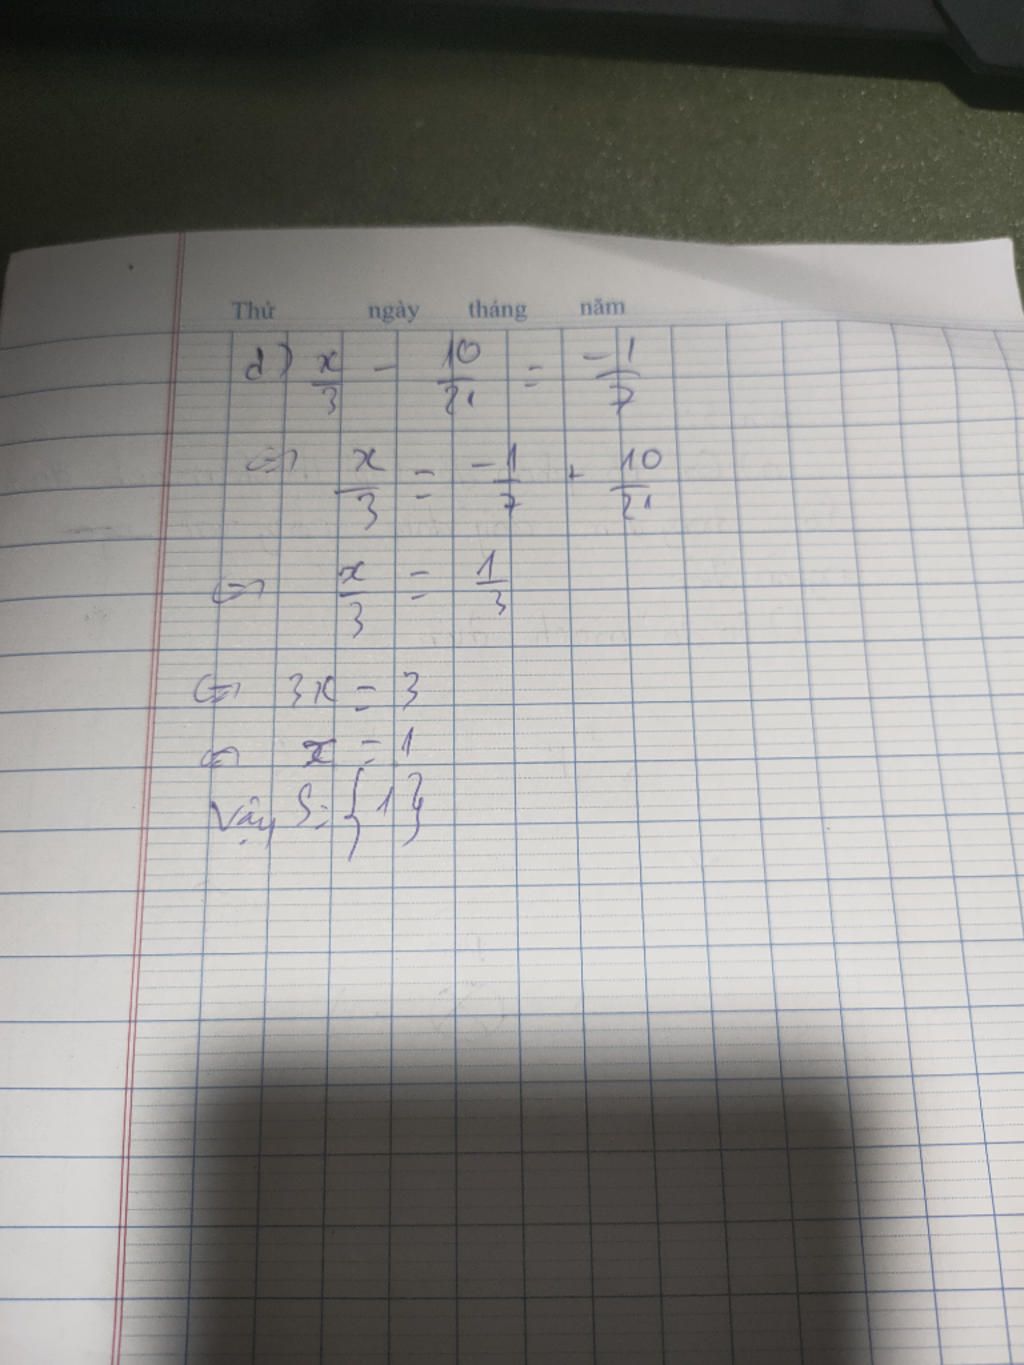 Thứ ngày tháng năm
d) x/3 - 10/21 = -1/7
<=> x/3 = -1/7 + 10/21
<=> x/3 = 1/3
<=> 3x = 3
<=> x = 1
Vậy S = {1}